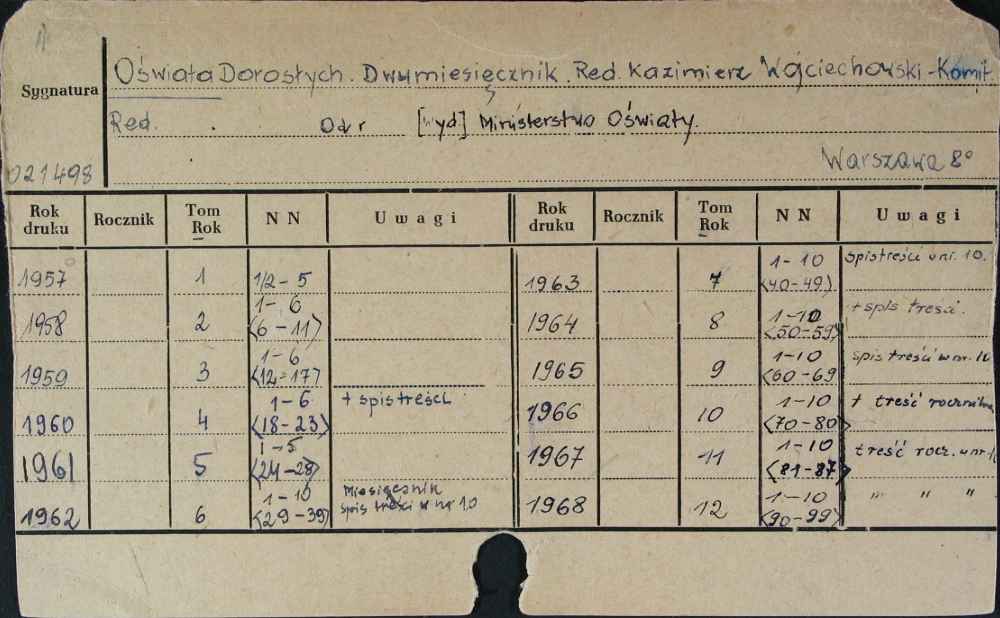 Sygnatura
Oświata Dorosłych. Dwumiesięcznik. Red. Kazimierz Wojciechowski - Komit.
Red. Odr [wyd] Ministerstwo Oświaty.
Warszawa 8°
021498
Rok druku Rocznik Tom Rok N N Uwagi Rok druku Rocznik Tom Rok N N Uwagi
1957 1 1/2 - 5
1958 2 1 - 6 <6 - 11>
1959 3 1 - 6 <12 - 17>
1960 4 1 - 6 <18 - 23> + spis treści
1961 5 1 - 5 <24 - 28>
1962 6 1 - 10 <29 - 39> Miesięcznik spis treści w nr 10
1963 7 1 - 10 <40 - 49> spis treści w nr. 10.
1964 8 1 - 10 <50 - 59> + spis treści.
1965 9 1 - 10 <60 - 69 spis treści w nr. 10
1966 10 1 - 10 <70 - 80> + treść rocznika
1967 11 1 - 10 <81 - 87> treść rocz. w nr. 1
1968 12 1 - 10 <90 - 99> " " "